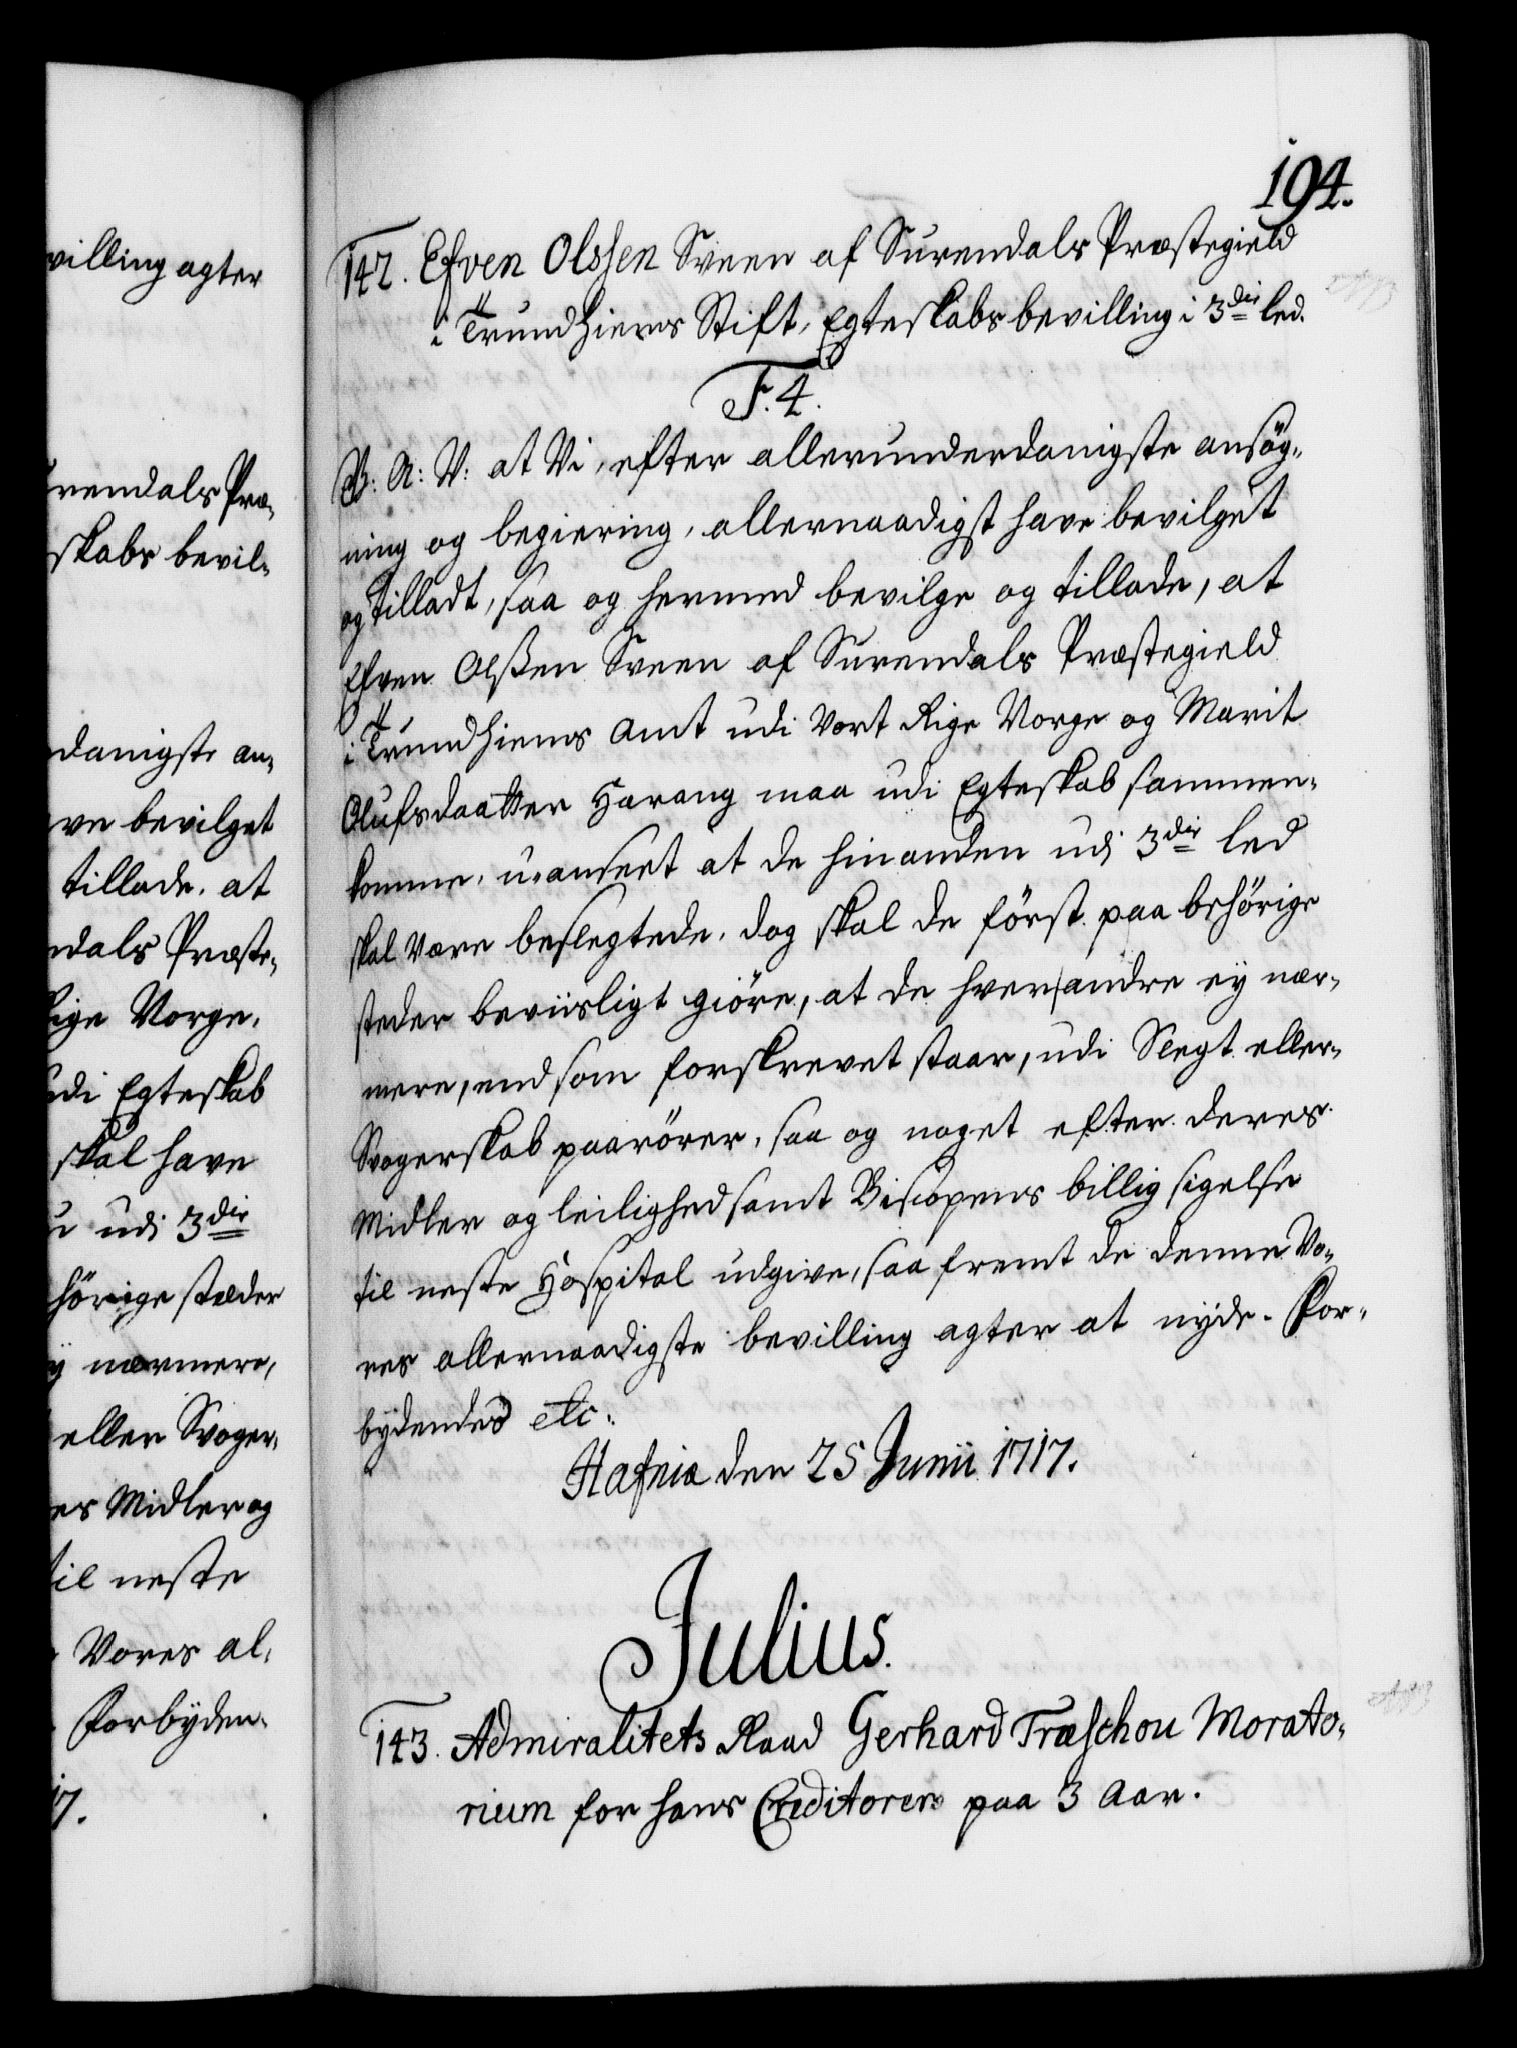 villing agter
rendals Præ-
skabs bevil-
danigste an-
ve bevilget
tillade, at
ndals Præste-
Rige Norge,
udi Egteskab
skal have
udi 3die
hörige stæder
nærmere,
eller Svoger-
es Midler og
til neste
Vores al-
Forbyden-
17.
194.
142. Efven Olssen Sveen af Surendals Præstegield
i Trundhiems Stift, Egteskabs bevilling i 3die led.
F. 4.
G: A: V: at Vi, efter allerunderdanigste ansög-
ning og begiering, allernaadigst have bevilget
og tilladt, saa og hermed bevilge og tillade, at
Efven Olßen Sveen af Surendals Præstegield
i Trundhiems Amt udi Vort Rige Norge og Marit
Olufsdaatter Harang maa udi Egteskab sammen-
komme, u-anseet at de hinanden udi 3die led
skal være beslegtede, dog skal de först paa behörige
steder beviisligt giöre, at de hverandre ey nær-
mere, end som forskrevet staar, udi Slegt eller
Svogerskab paarörer, saa og noget efter deres
Midler og leilighed samt Biscopens billig sigelse
til neste Hospital udgive, saafremt de denne Vo-
res allernaadigste bevilling agter at nyde. For-
bydendes etc.
Hafnia den 25 Junii 1717.
Julius.
143. Admiralitets Raad Gerhard Træschou Morato-
rium for hans Creditorer paa 3 Aar.